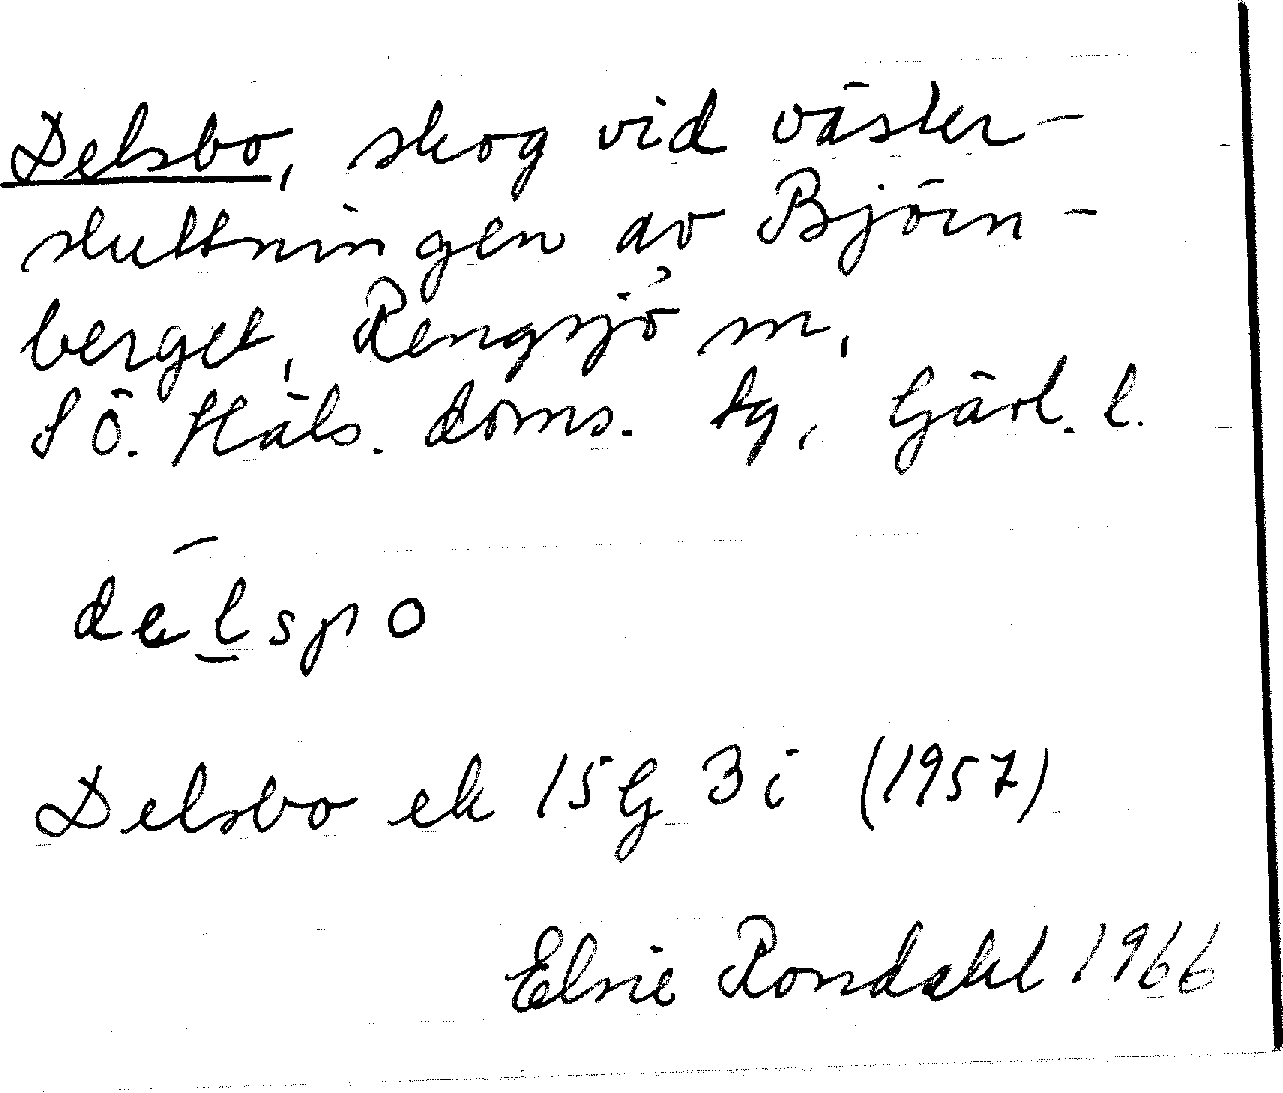 Delsbo, skog vid väster-
sluttningen av Björn-
berget, Rengsjö sn,
SÖ. Häls. doms. tg, Gävl. l.
délspo
Delsbo ek 15G 3i (1957)
Elsie Rondahl 1966